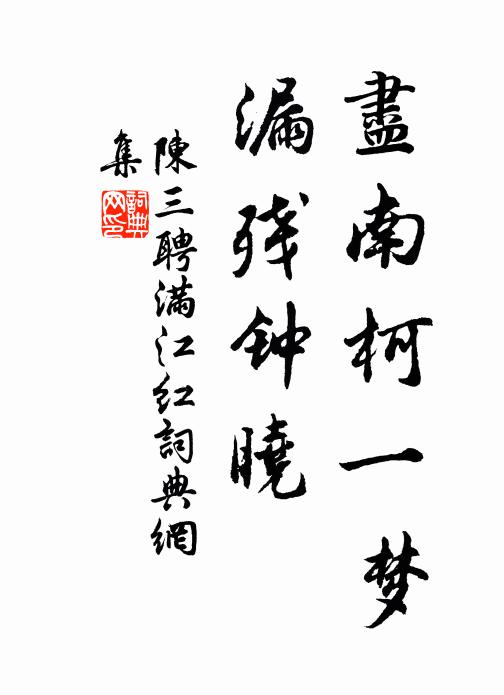 盡南柯一梦
漏残钟曉
陳三聘满江红詞典網
集
詞典网印